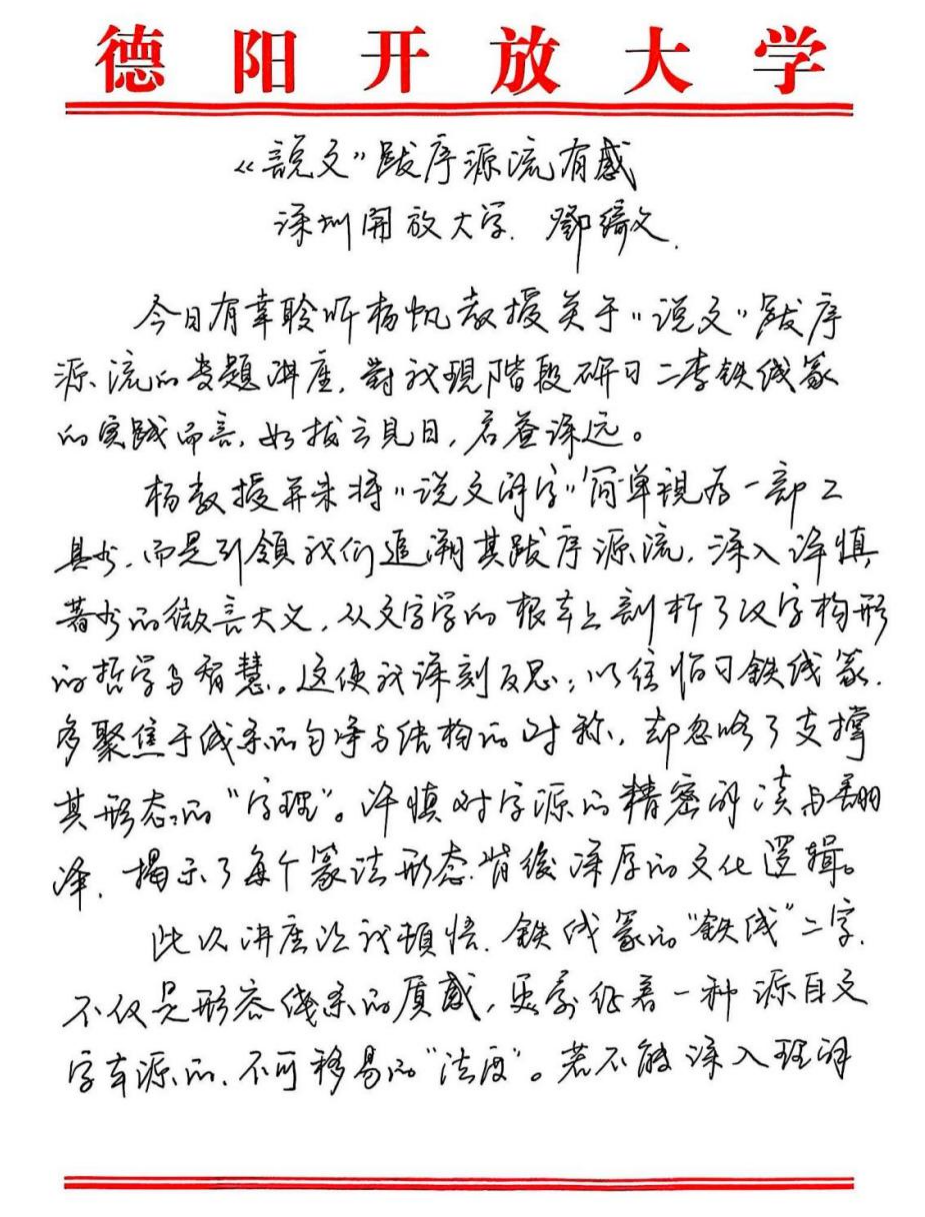 德阳开放大学
“説文”跋序源流有感
深圳開放大学. 鄧綺文.
今日有幸聆听杨帆教授关于“说文”跋序
源流的专题讲座，對我現階段研习二李铁线篆
的实践而言，如拔云見日，启益深远。
杨教授并未将“说文解字”简单視为一部工
具书，而是引領我们追溯其跋序源流，深入许慎
著书的微言大义，从文字学的根本上剖析了汉字构形
的哲学与智慧。这使我深刻反思：以往临习铁线篆，
多聚焦于线条的匀净与结构的对称，却忽略了支撑
其形态的“字理”。许慎对字源的精密解读与翻
译，揭示了每个篆法形态背後深厚的文化逻辑。
此次讲座让我頓悟，铁线篆的“铁线”二字，
不仅是形容线条的质感，更象征着一种源自文
字本源的、不可移易的“法度”。若不能深入理解